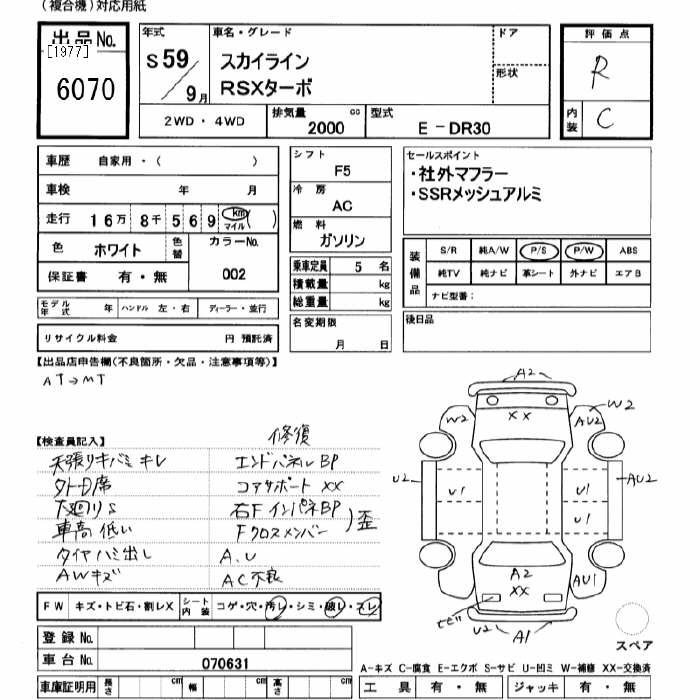 (複合機)対応用紙
出品No.
[1977]
6070
年式
S59/9月
車名・グレード
スカイライン
RSXターボ
ドア
形状
2WD・4WD
排気量
2000
cc
型式
E-DR30
評価点
R
内装
C
車歴 自家用・( )
車検 年 月
走行 16万 8千 5 6 9 km マイル ( )
色 ホワイト 色替
カラーNo.
002
保証書 有・無
モデル年式 年 ハンドル 左・右 ディーラー・並行
リサイクル料金 円 預託済
シフト
F5
冷房
AC
燃料
ガソリン
乗車定員 5 名
積載量 kg
総重量 kg
名変期限
月 日
セールスポイント
・社外マフラー
・SSRメッシュアルミ
装備品
S/R 純A/W P/S P/W ABS
純TV 純ナビ 革シート 外ナビ エアB
ナビ型番:
後日品
【出品店申告欄(不良箇所・欠品・注意事項等)】
AT→MT
【検査員記入】
天張りキバミ キレ
外トD席
下廻りS
車高 低い
タイヤハミ出し
AWキズ
修復
エンドパネルBP
コアサポートXX
右Fインパネ BP
Fクロスメンバー
)歪
A.U
AC不良
FW キズ・トビ石・割レX
シート内装 コゲ・穴・汚レ・シミ・破レ・スレ
登録No.
車台No. 070631
車庫証明用 長さ cm 幅 cm 高さ cm
A2
XX
W2
W2
AU2
U2
U1
U1
U1
AU2
A2
XX
AU1
ヒビ
U2
A1
スペア
A-キズ C-腐食 E-エクボ S-サビ U-凹ミ W-補修 XX-交換済
工具 有・無 ジャッキ 有・無